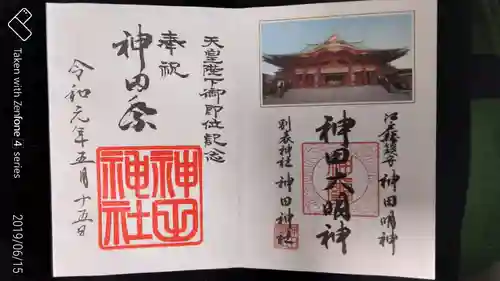 江戸総鎮守 神田明神
神田大明神
別表神社 神田神社
天皇陛下御即位記念
奉祝
神田祭
神田神社
令和元年五月十五日
Taken with Zenfone 4 series
2019/06/15